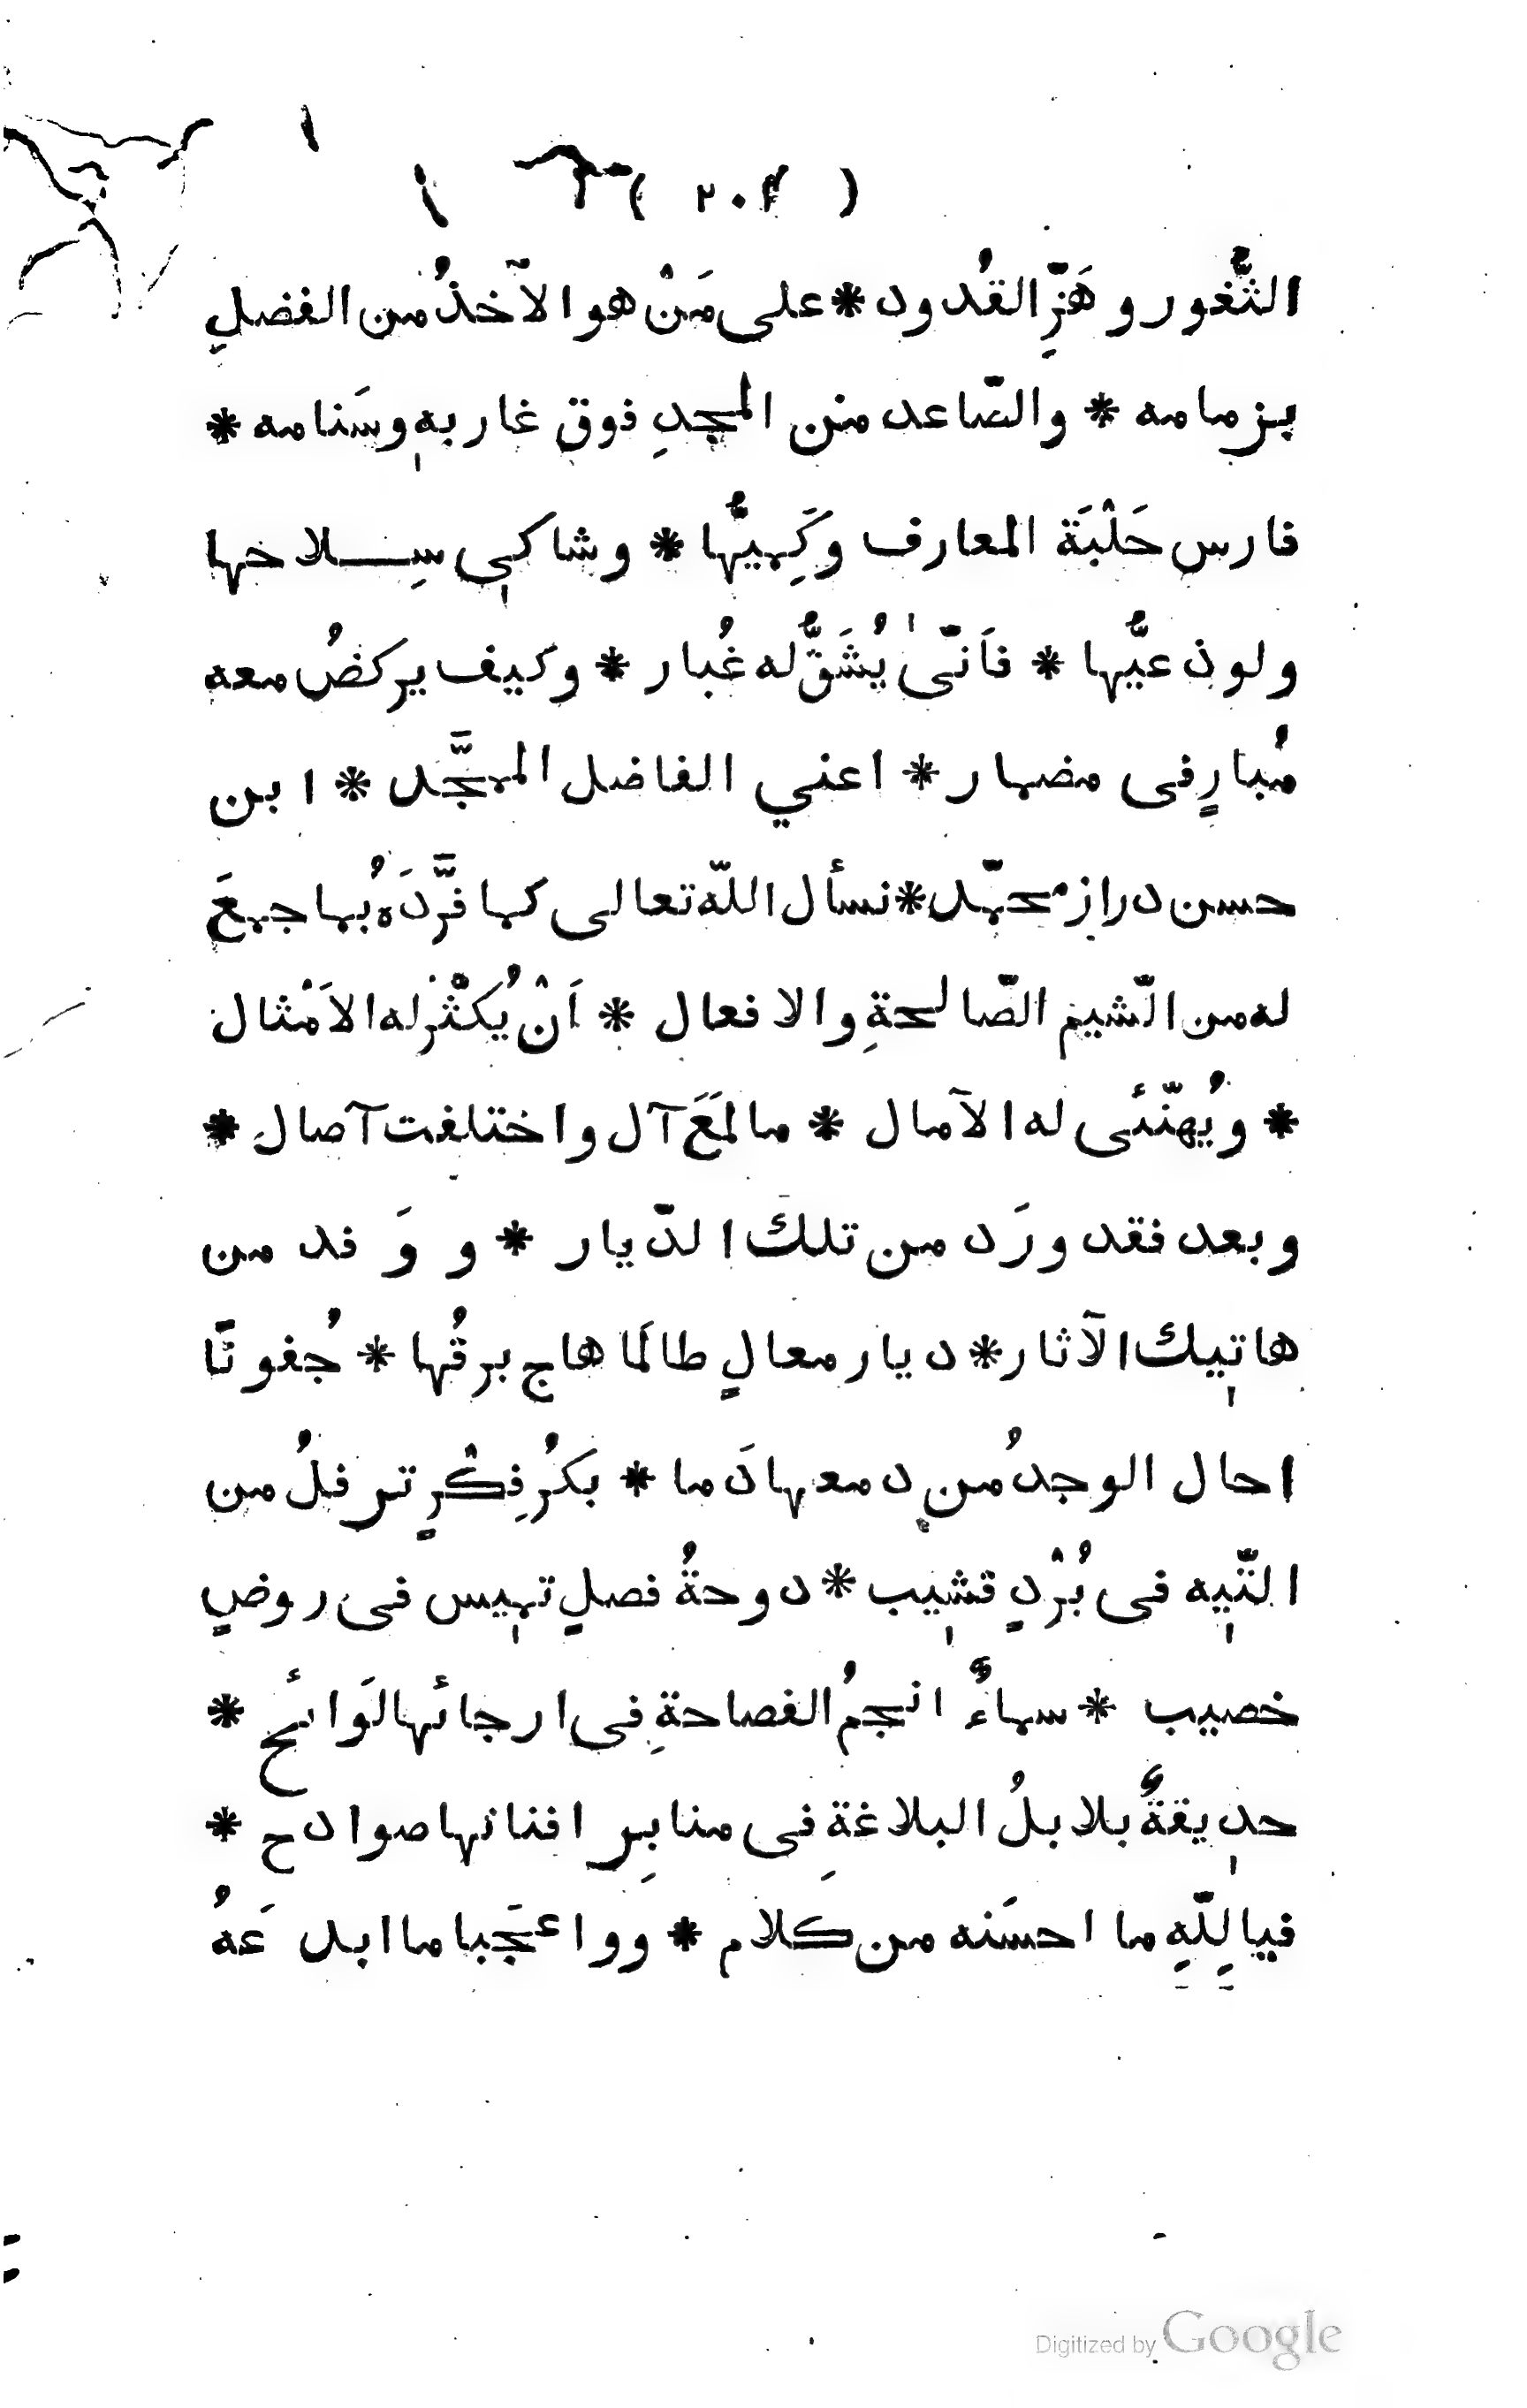 ( ٢٠٤ )
الثُّغور وهَزِّ القُدود * على مَنْ هو الآخذُ من الفضلِ
بزمامه * والصّاعد من المجدِ فوق غاربهٖ وسَنامه *
فارس حَلْبَة المعارف وكَمِيُّها * وشاكي سِلاحها
ولوذعيُّها * فاَنّىٰ يُشَقُّ له غُبار * وكيف يركضُ معه
مُبارٍ فى مضمار * اعني الفاضل الممجَّد * ابن
حسن دراز محمّد * نسأل اللّه تعالى كما فرَّدَهُ بما جمعَ
له من الشّيم الصّالحةِ والافعال * اَنْ يُكْثرَ له الاَمْثال
* ويُهنّئى له الآمال * ما لمَعَ آل واختلفت آصال *
وبعد فقد ورَد من تلك الدّيار * ووَفد من
هاتيك الآثار * ديار معالٍ طالمَا هاج برقُها * جُفونًا
احال الوجدُ من دمعها دَما * بَكرُ فِكْرٍ ترفلُ من
التّيه فى بُرْدٍ قشيب * دوحةُ فصلٍ تميس فى روضٍ
خصيب * سماءٌ انجمُ الفصاحةِ فى ارجائها لوَائح *
حديقةٌ بلابلُ البلاغةِ فى منابِر افنانها صوادح *
فيا لِلّهِ ما احسَنه من كلام * وواعجَبا ما ابدعَهُ
Digitized by Google